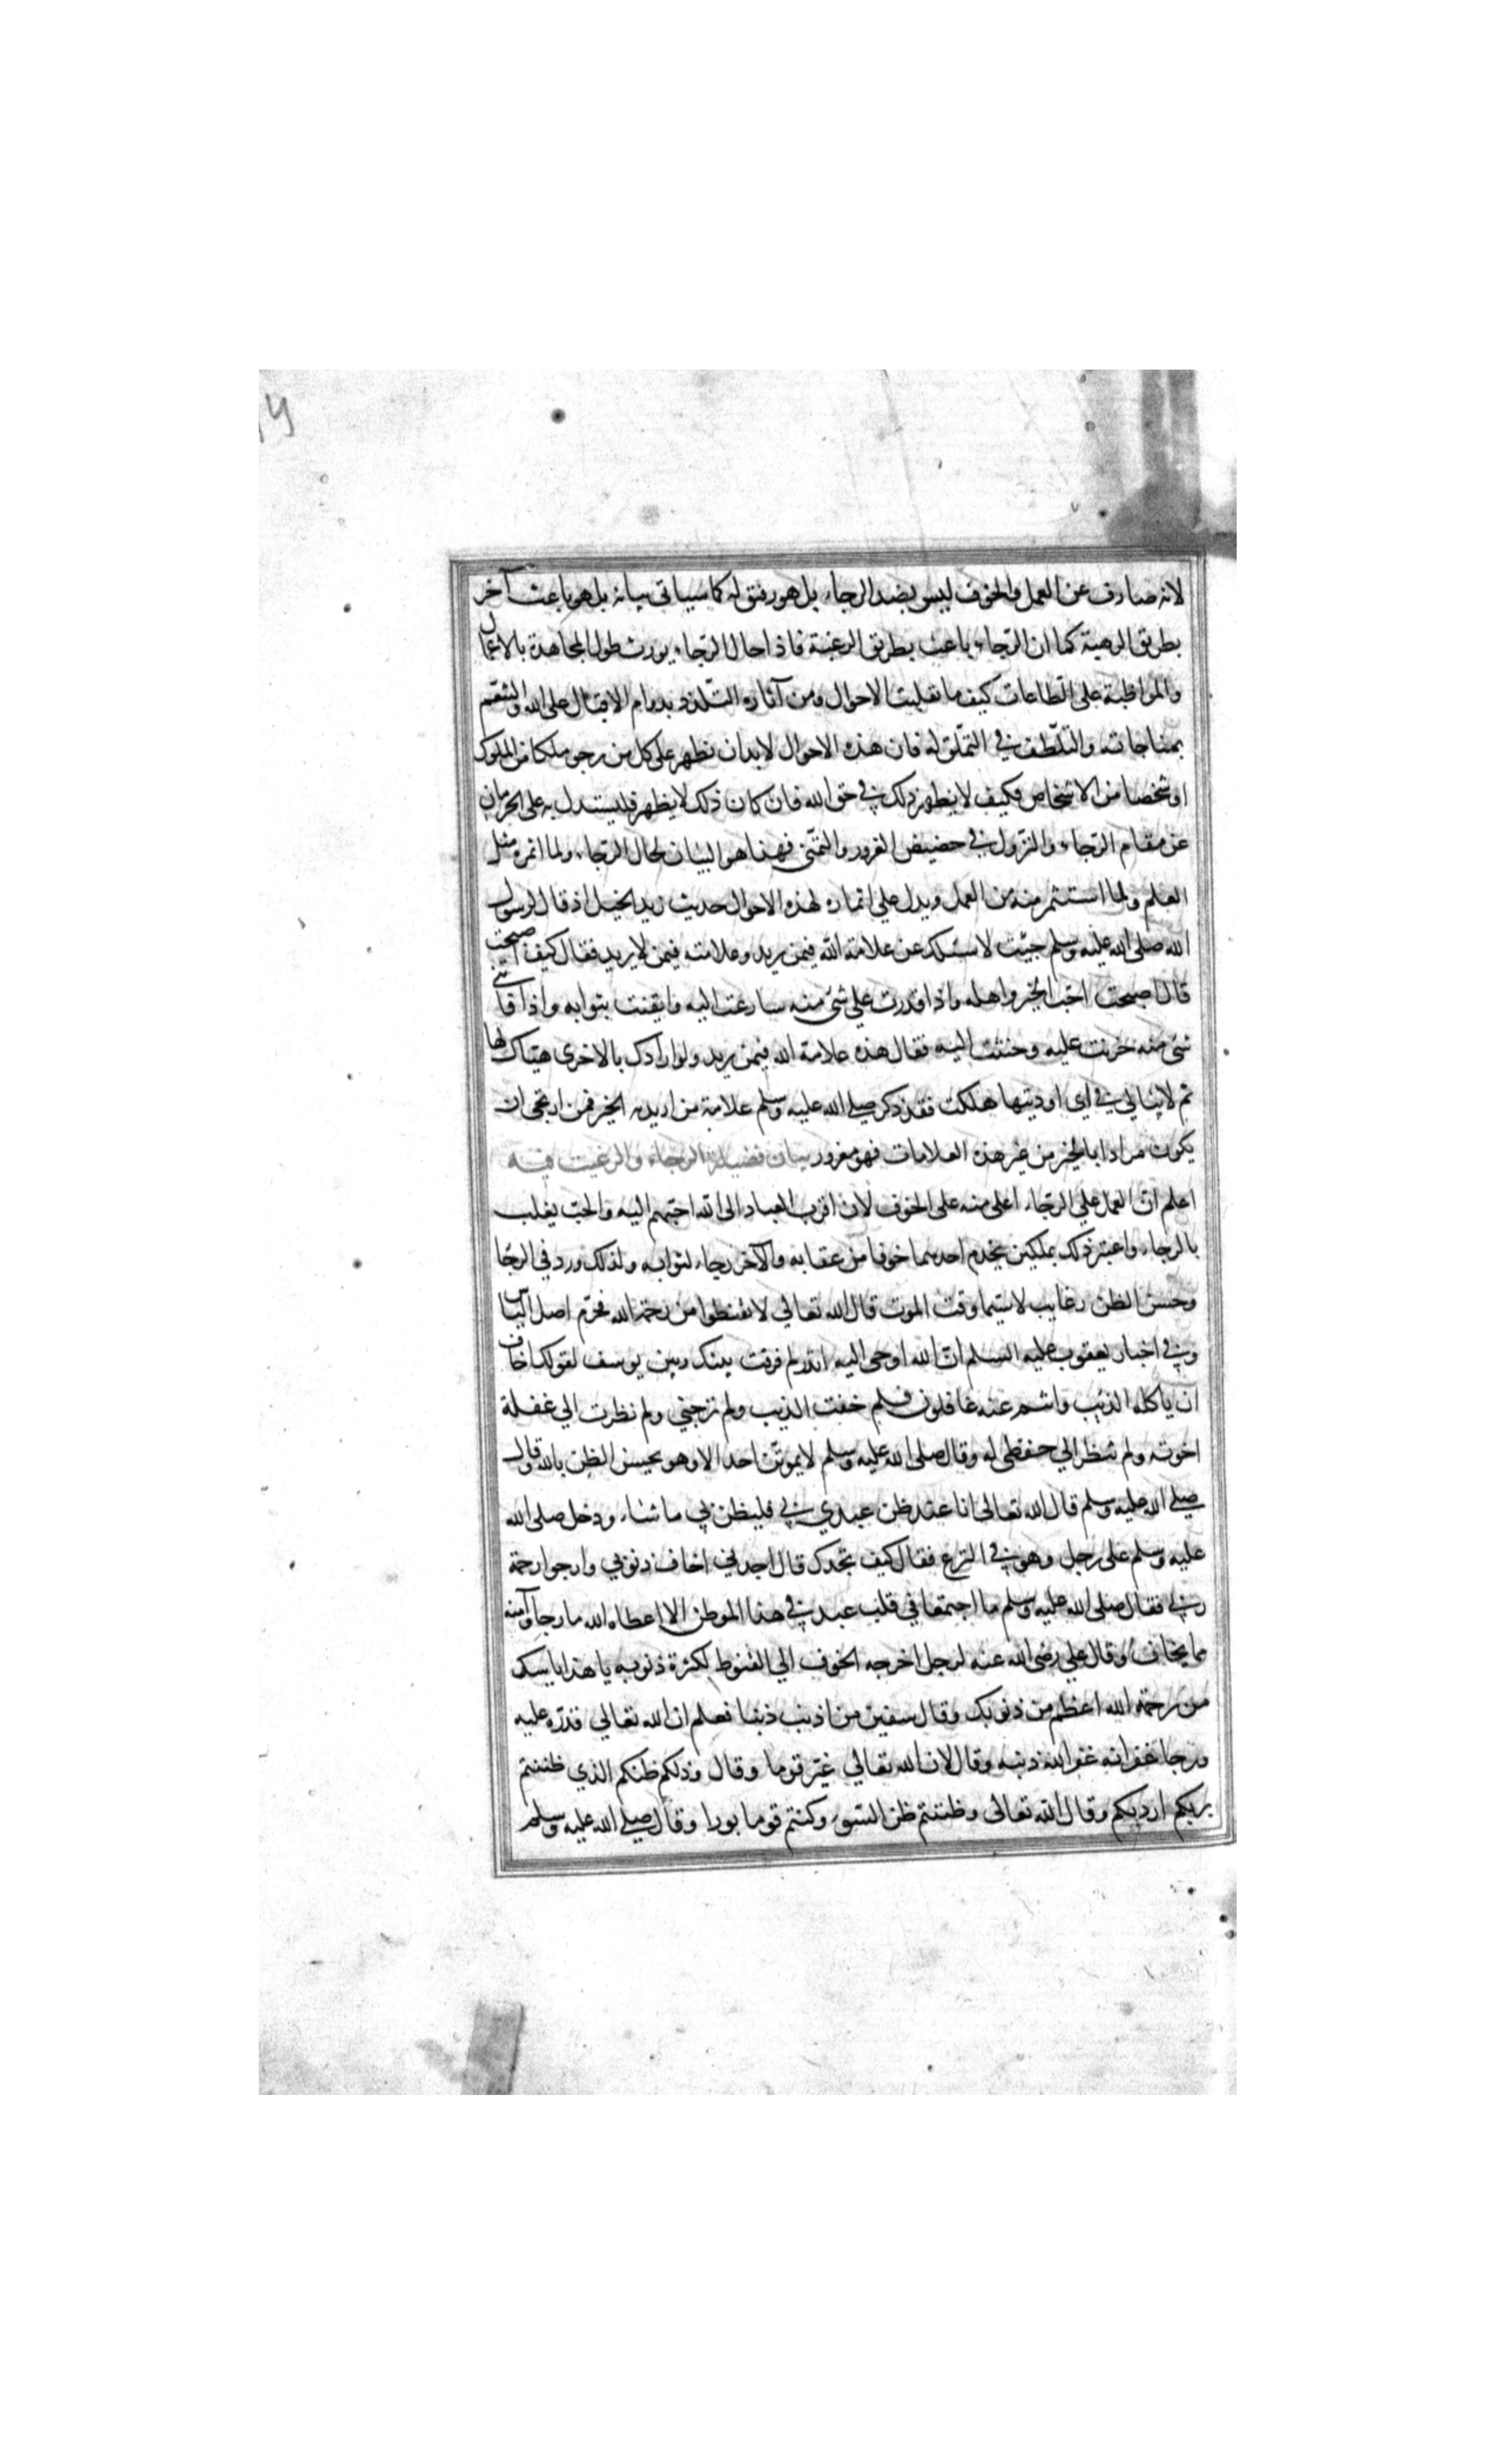 لانه صارف عن العمل والخوف ليس بضد الرجاء بل هو رفيق له كما سيأتي بيانه بل هو باعث آخر
بطريق الرهبة كما ان الرجاء باعث بطريق الرغبة فاذا حال الرجاء يورث طول المجاهدة بالاعمال
والمواظبة على الطاعات كيف ما تقلبت الاحوال ومن آثاره التلذذ بدوام الاقبال على الله والتنعم
بمناجاته والتلطف في التملق له فان هذه الاحوال لا بد ان تظهر على كل من يرجو ملكا من الملوك
او شخصا من الاشخاص فكيف لا يظهر ذلك في حق الله فان كان ذلك لا يظهر فليستدل به على الحرمان
عن مقام الرجاء والنزول في حضيض الغرور والتمني فهذا هو البيان لحال الرجاء ولما اثمره مثل
العلم ولما استثمر منه من العمل ويدل على اثماره لهذه الاحوال حديث زيد الخيل اذ قال لرسول
الله صلى الله عليه وسلم جيت لاسئلك عن علامة الله فيمن يريد وعلامته فيمن لا يريد فقال كيف اصبحت
قال اصبحت احب الخير واهله واذا قدرت على شئ منه سارعت اليه وايقنت بثوابه واذا فاتني
شئ منه حزنت عليه وحننت اليه فقال هذه علامة الله فيمن يريد ولو ارادك بالاخرى هياك لها
ثم لا يبالي في اي اوديتها هلكت فقد ذكر صلى الله عليه وسلم علامة من اريد به الخير فمن ارتجى ان
يكون مرادا بالخير من غير هذه العلامات فهو مغرور بيان فضيلة الرجاء والرغيت فيه
اعلم ان العمل على الرجاء اعلى منه على الخوف لان اقرب العباد الى الله احبهم اليه والحب يغلب
بالرجاء واعتبر ذلك بملكين يخدم احدهما خوفا من عقابه والآخر رجاء لثوابه ولذلك ورد في الرجا
وحسن الظن رغايب لا سيما وقت الموت قال الله تعالى لا تقنطوا من رحمة الله فحرم اصل الياس
وفي اخبار يعقوب عليه السلم ان الله اوحى اليه اتدر لم فرقت بينك وبين يوسف لقولك اخاف
ان ياكله الذئب وانتم عنه غافلون فلم خفت الذيب ولم ترجني ولم نظرت الى غفلة
اخوته ولم تنظر الى حفظي له وقال صلى الله عليه وسلم لا يموتن احد الا وهو يحسن الظن بالله وقال
صلى الله عليه وسلم قال الله تعالى انا عند ظن عبدي بي فليظن بي ما شاء ودخل صلى الله
عليه وسلم على رجل وهو في النزع فقال كيف تجدك قال اجدني اخاف ذنوبي وارجوا رحمة
ربي فقال صلى الله عليه وسلم ما اجتمعا في قلب عبد في هذا الموطن الا اعطاه الله ما رجا وآمنه
مما يخاف وقال علي رضى الله عنه لرجل اخرجه الخوف الى القنوط لكثرة ذنوبه يا هذا ياسك
من رحمة الله اعظم من ذنوبك وقال سفين من اذنب ذنبا فعلم ان الله تعالى قدره عليه
ورجا غفرانه غفر الله ذنبه وقال لان الله تعالى غير قوما وقال وذلكم ظنكم الذي ظننتم
بربكم ارديكم وقال الله تعالى وظننتم ظن السوء وكنتم قوما بورا وقال صلى الله عليه وسلم